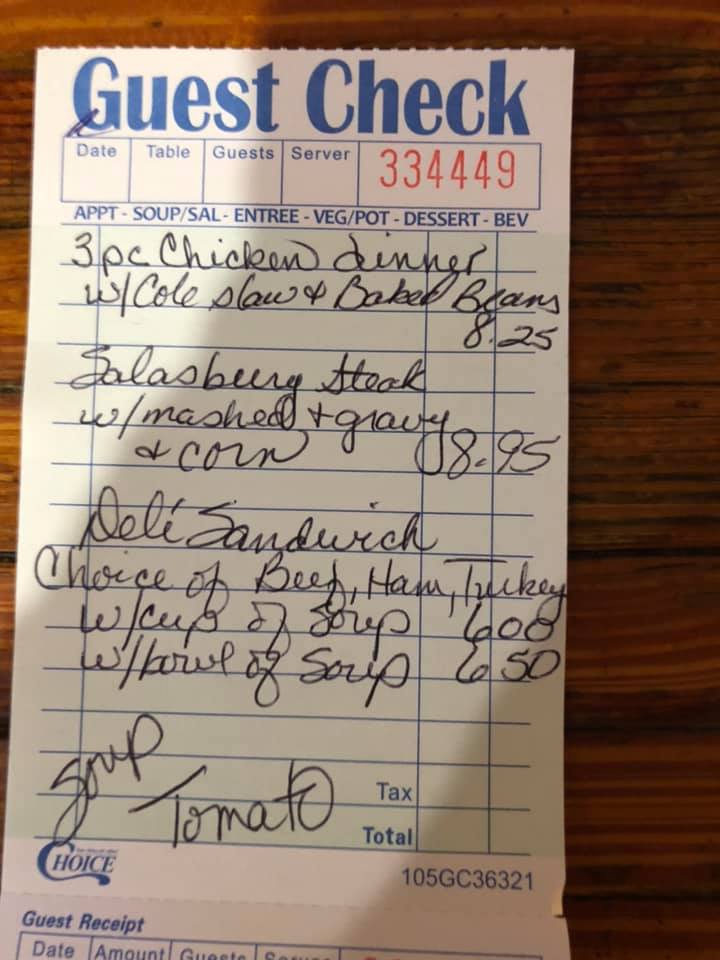 Guest Check
Date Table Guests Server 334449
APPT - SOUP/SAL - ENTREE - VEG/POT - DESSERT - BEV
3 pc Chicken dinner
w/Cole slaw & Baked Beans
8.25
Salasburg Steak
w/mashed + gravy
& corn 8.95
Deli Sandwich
Choice of Beef, Ham, Turkey
w/cup of Soup 6 00
w/bowl of Soup 6 50
Soup
Tomato
Tax
Total
CHOICE
105GC36321
Guest Receipt
Date Amount Guests Server